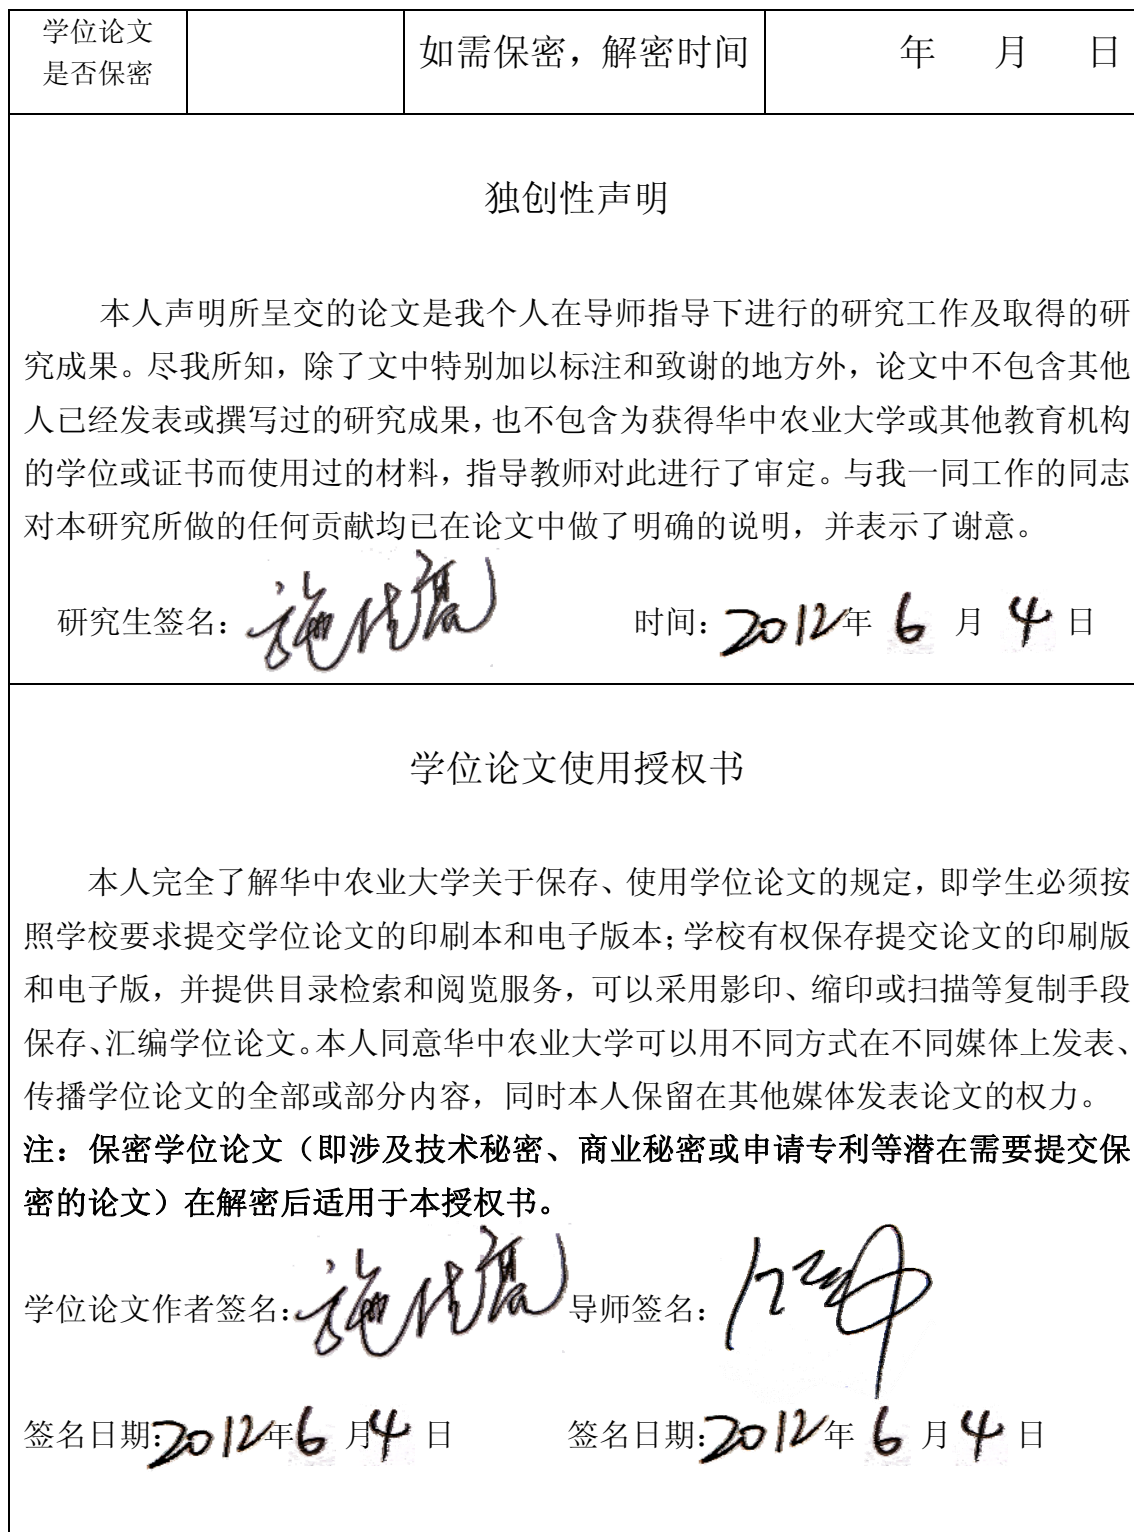 学位论文
是否保密
如需保密，解密时间
年 月 日
独创性声明
本人声明所呈交的论文是我个人在导师指导下进行的研究工作及取得的研
究成果。尽我所知，除了文中特别加以标注和致谢的地方外，论文中不包含其他
人已经发表或撰写过的研究成果，也不包含为获得华中农业大学或其他教育机构
的学位或证书而使用过的材料，指导教师对此进行了审定。与我一同工作的同志
对本研究所做的任何贡献均已在论文中做了明确的说明，并表示了谢意。
研究生签名： 时间：2012年 6 月 4 日
学位论文使用授权书
本人完全了解华中农业大学关于保存、使用学位论文的规定，即学生必须按
照学校要求提交学位论文的印刷本和电子版本；学校有权保存提交论文的印刷版
和电子版，并提供目录检索和阅览服务，可以采用影印、缩印或扫描等复制手段
保存、汇编学位论文。本人同意华中农业大学可以用不同方式在不同媒体上发表、
传播学位论文的全部或部分内容，同时本人保留在其他媒体发表论文的权力。
注：保密学位论文（即涉及技术秘密、商业秘密或申请专利等潜在需要提交保
密的论文）在解密后适用于本授权书。
学位论文作者签名： 导师签名：
签名日期：2012年6 月4 日 签名日期：2012年 6 月 4 日